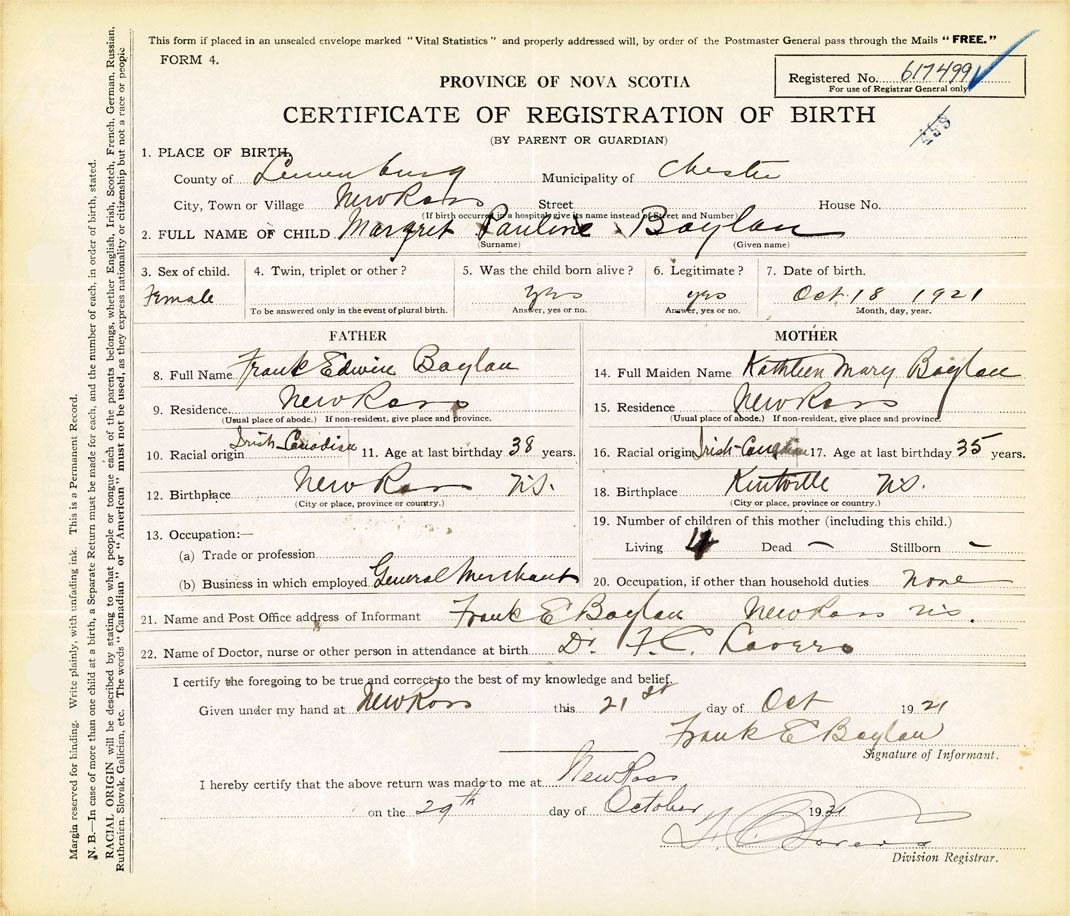 This form if placed in an unsealed envelope marked "Vital Statistics" and properly addressed will, by order of the Postmaster General pass through the Mails "FREE."
FORM 4.
Registered No. 617499
For use of Registrar General only
PROVINCE OF NOVA SCOTIA
CERTIFICATE OF REGISTRATION OF BIRTH
(BY PARENT OR GUARDIAN)
1. PLACE OF BIRTH,
County of Lunenburg Municipality of Chester
City, Town or Village New Ross Street House No.
(If birth occurred in a hospital give its name instead of Street and Number)
2. FULL NAME OF CHILD Margret Pauline Boylan
(Surname) (Given name)
3. Sex of child. 4. Twin, triplet or other? 5. Was the child born alive? 6. Legitimate? 7. Date of birth.
Female yes yes Oct 18 1921
To be answered only in the event of plural birth. Answer, yes or no. Answer, yes or no. Month, day, year.
FATHER MOTHER
8. Full Name Frank Edwin Boylan 14. Full Maiden Name Kathleen Mary Boylan
9. Residence New Ross 15. Residence New Ross
(Usual place of abode.) If non-resident, give place and province. (Usual place of abode.) If non-resident, give place and province.
10. Racial origin Irish-Canadian 11. Age at last birthday 38 years. 16. Racial origin Irish-Canadian 17. Age at last birthday 35 years.
12. Birthplace New Ross N.S. 18. Birthplace Kintville N.S.
(City or place, province or country.) (City or place, province or country.)
13. Occupation:— 19. Number of children of this mother (including this child.)
(a) Trade or profession Living 4 Dead – Stillborn –
(b) Business in which employed General Merchant 20. Occupation, if other than household duties none
21. Name and Post Office address of Informant Frank E Boylan New Ross N.S.
22. Name of Doctor, nurse or other person in attendance at birth Dr. F. C. Lavers
I certify the foregoing to be true and correct to the best of my knowledge and belief.
Given under my hand at New Ross this 21st day of Oct 1921
Frank E Boylan
Signature of Informant.
I hereby certify that the above return was made to me at New Ross
on the 29th day of October 1921
Division Registrar.
Margin reserved for binding. Write plainly, with unfading ink. This is a Permanent Record.
N. B.—In case of more than one child at a birth, a Separate Return must be made for each, and the number of each, in order of birth, stated.
RACIAL ORIGIN will be described by stating to what people or tongue each of the parents belongs, whether English, Irish, Scotch, French, German, Russian,
Ruthenian, Slovak, Galician, etc. The words "Canadian" or "American" must not be used, as they express nationality or citizenship but not a race or people